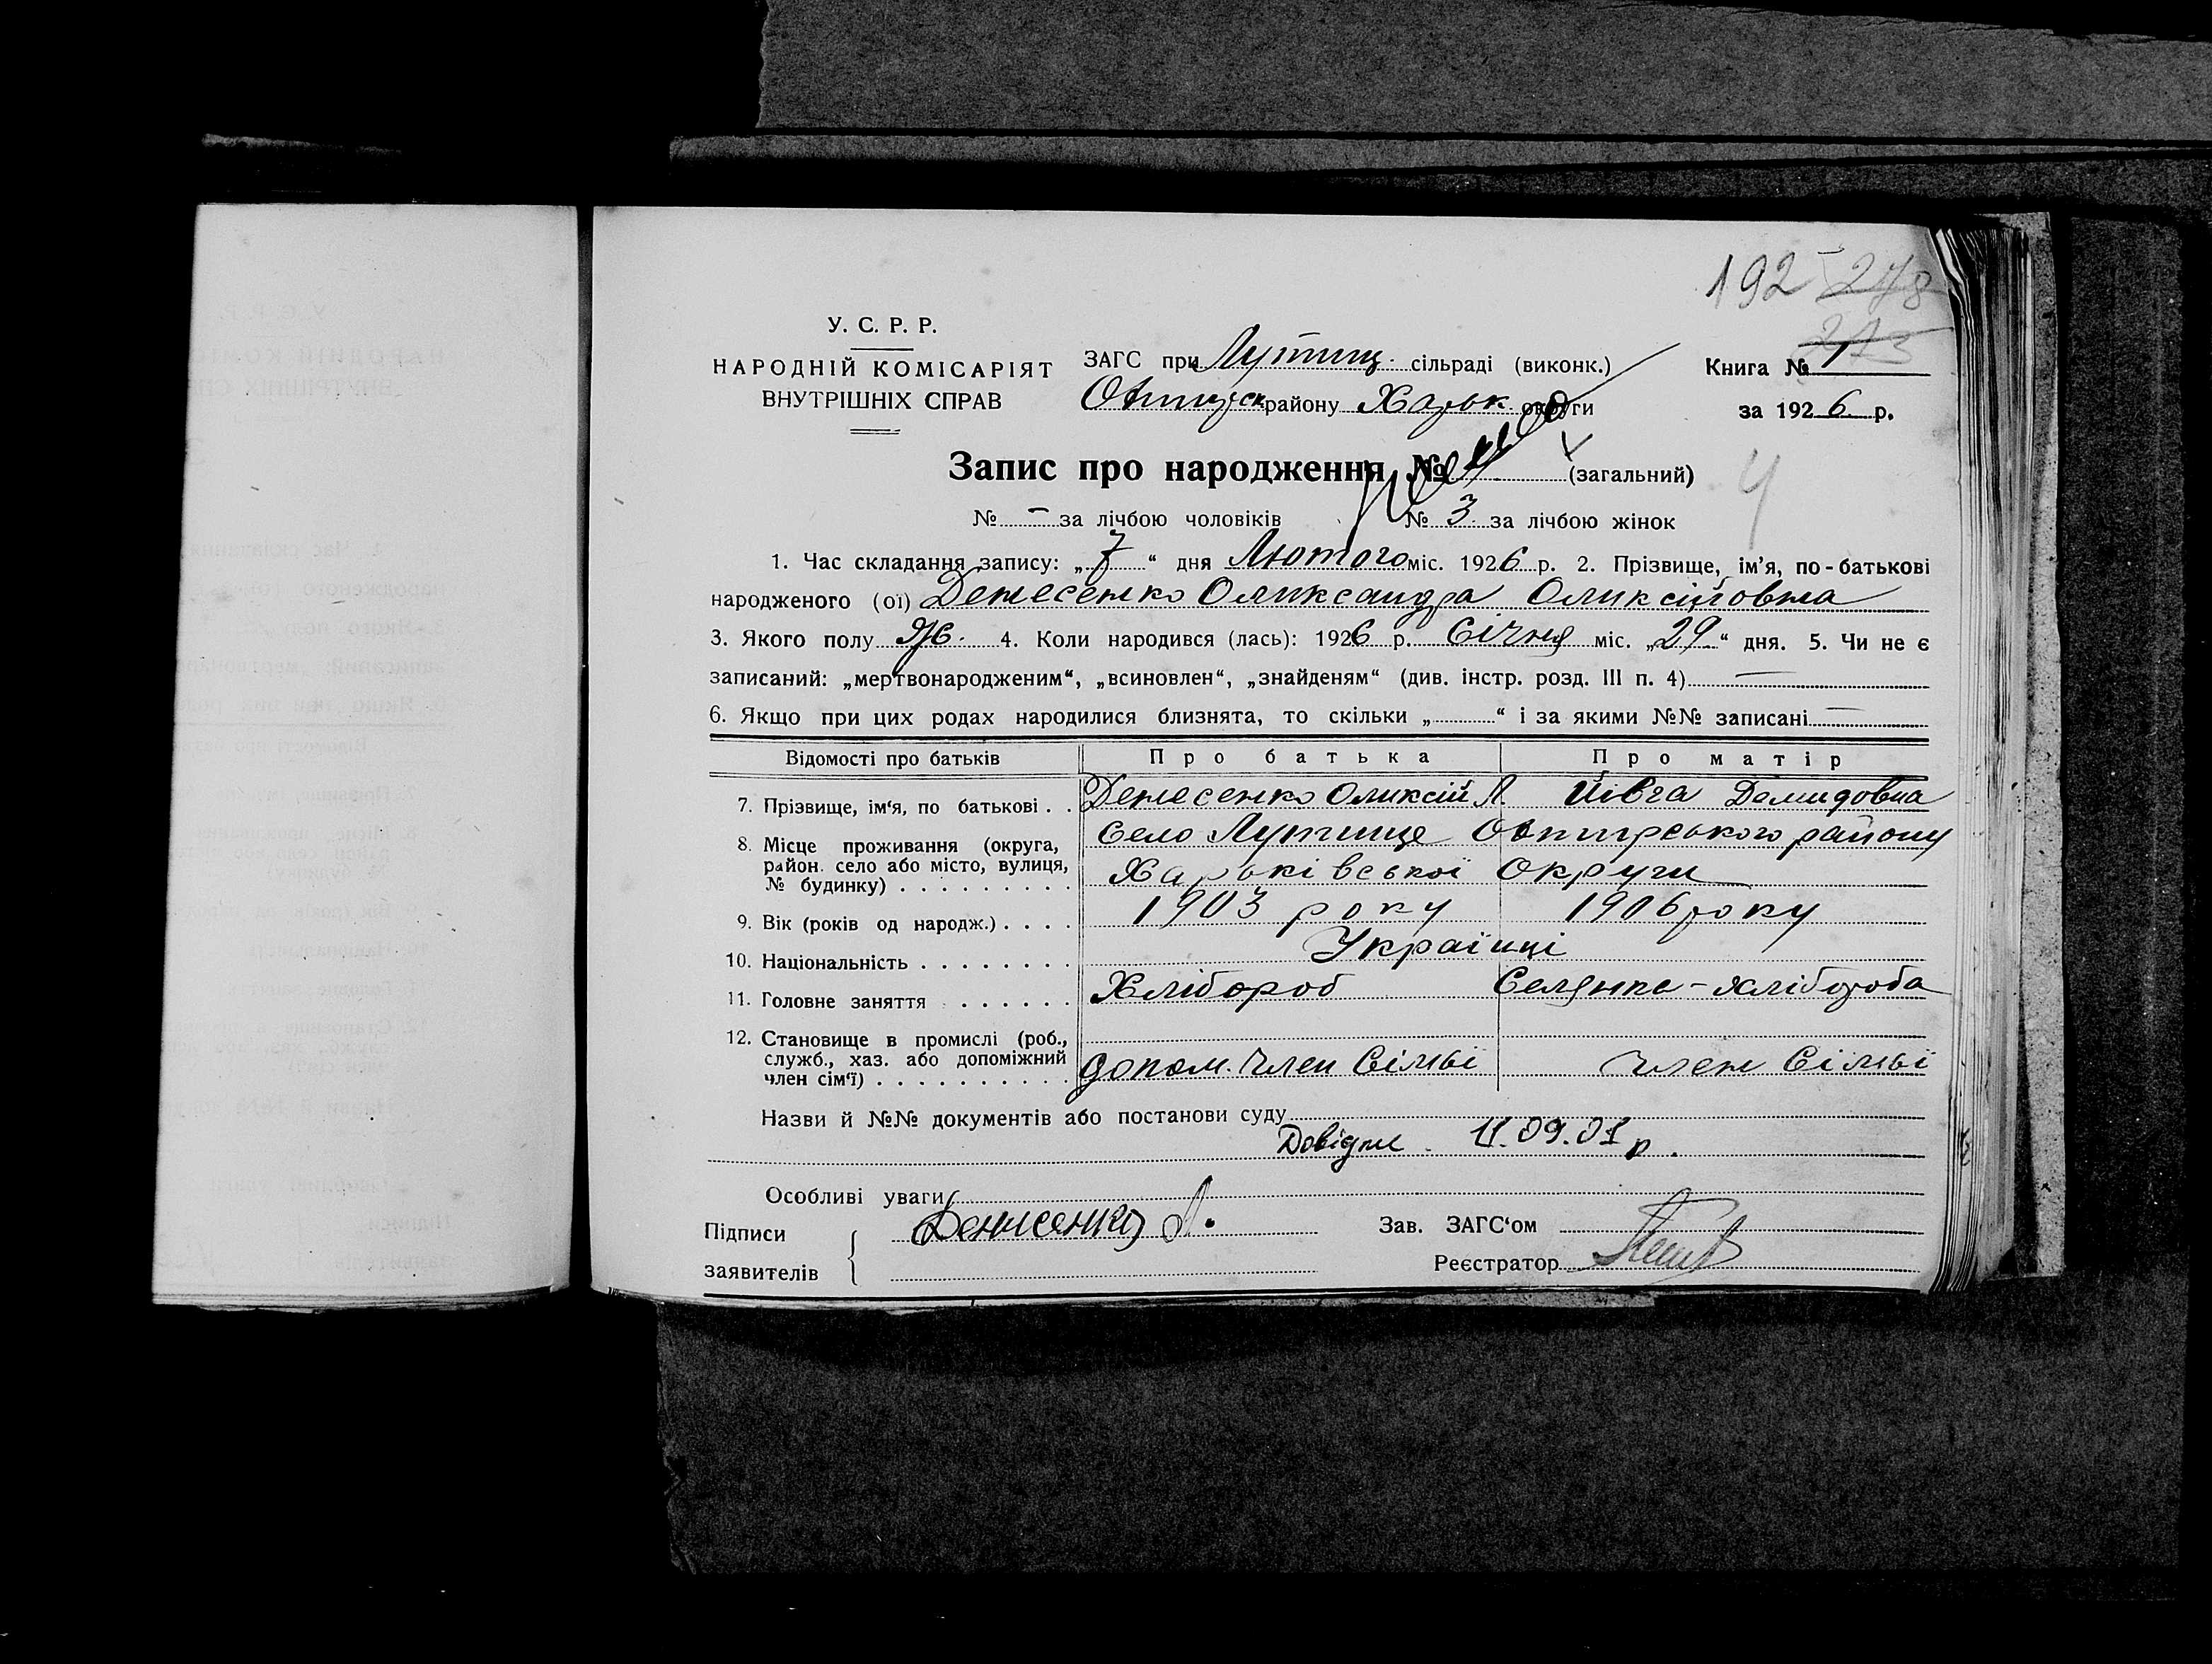 192 278
273
У. С. Р. Р.
НАРОДНІЙ КОМІСАРІЯТ
ВНУТРІШНІХ СПРАВ
ЗАГС при Лутищ. сільраді (виконк.)
району Харьк. округи
Книга № 1
за 1926 р.
Запис про народження № 4 (загальний)
4
№ – за лічбою чоловіків № 3 за лічбою жінок
1. Час складання запису: „7“ дня Лютого міс. 1926 р. 2. Прізвище, ім’я, по-батькові
народженого (ої) Денесенко Оликсандра Оликсійовна
3. Якого полу Ж. 4. Коли народився (лась): 1926 р. Січня міс. „29“ дня. 5. Чи не є
записаний: „мертвонародженим“, „всиновлен“, „знайденям“ (див. інстр. розд. III п. 4) —
6. Якщо при цих родах народилися близнята, то скільки „ “ і за якими №№ записані —
Відомості про батьків Про батька Про матір
7. Прізвище, ім‘я, по батькові . . Денесенко Оликсій Л. Ивга Демидовна
8. Місце проживання (округа, район. село або місто, вулиця, № будинку) . . . . . . . . . Село Лутище Охтирського району
Харьківської Округи
9. Вік (років од народж.) . . . . 1903 року 1906 року
10. Національність . . . . . . . . Українці
11. Головне заняття . . . . . . Хлібороб Селянка-хлібороба
12. Становище в промислі (роб., служб., хаз. або допоміжний член сім‘ї) . . . . . . . . . . допом. член Сімьї член Сімьї
Назви й №№ документів або постанови суду
11.09.01 р.
Особливі уваги
Підписи заявителів Денисенко Л.
Зав. ЗАГС‘ом
Реєстратор